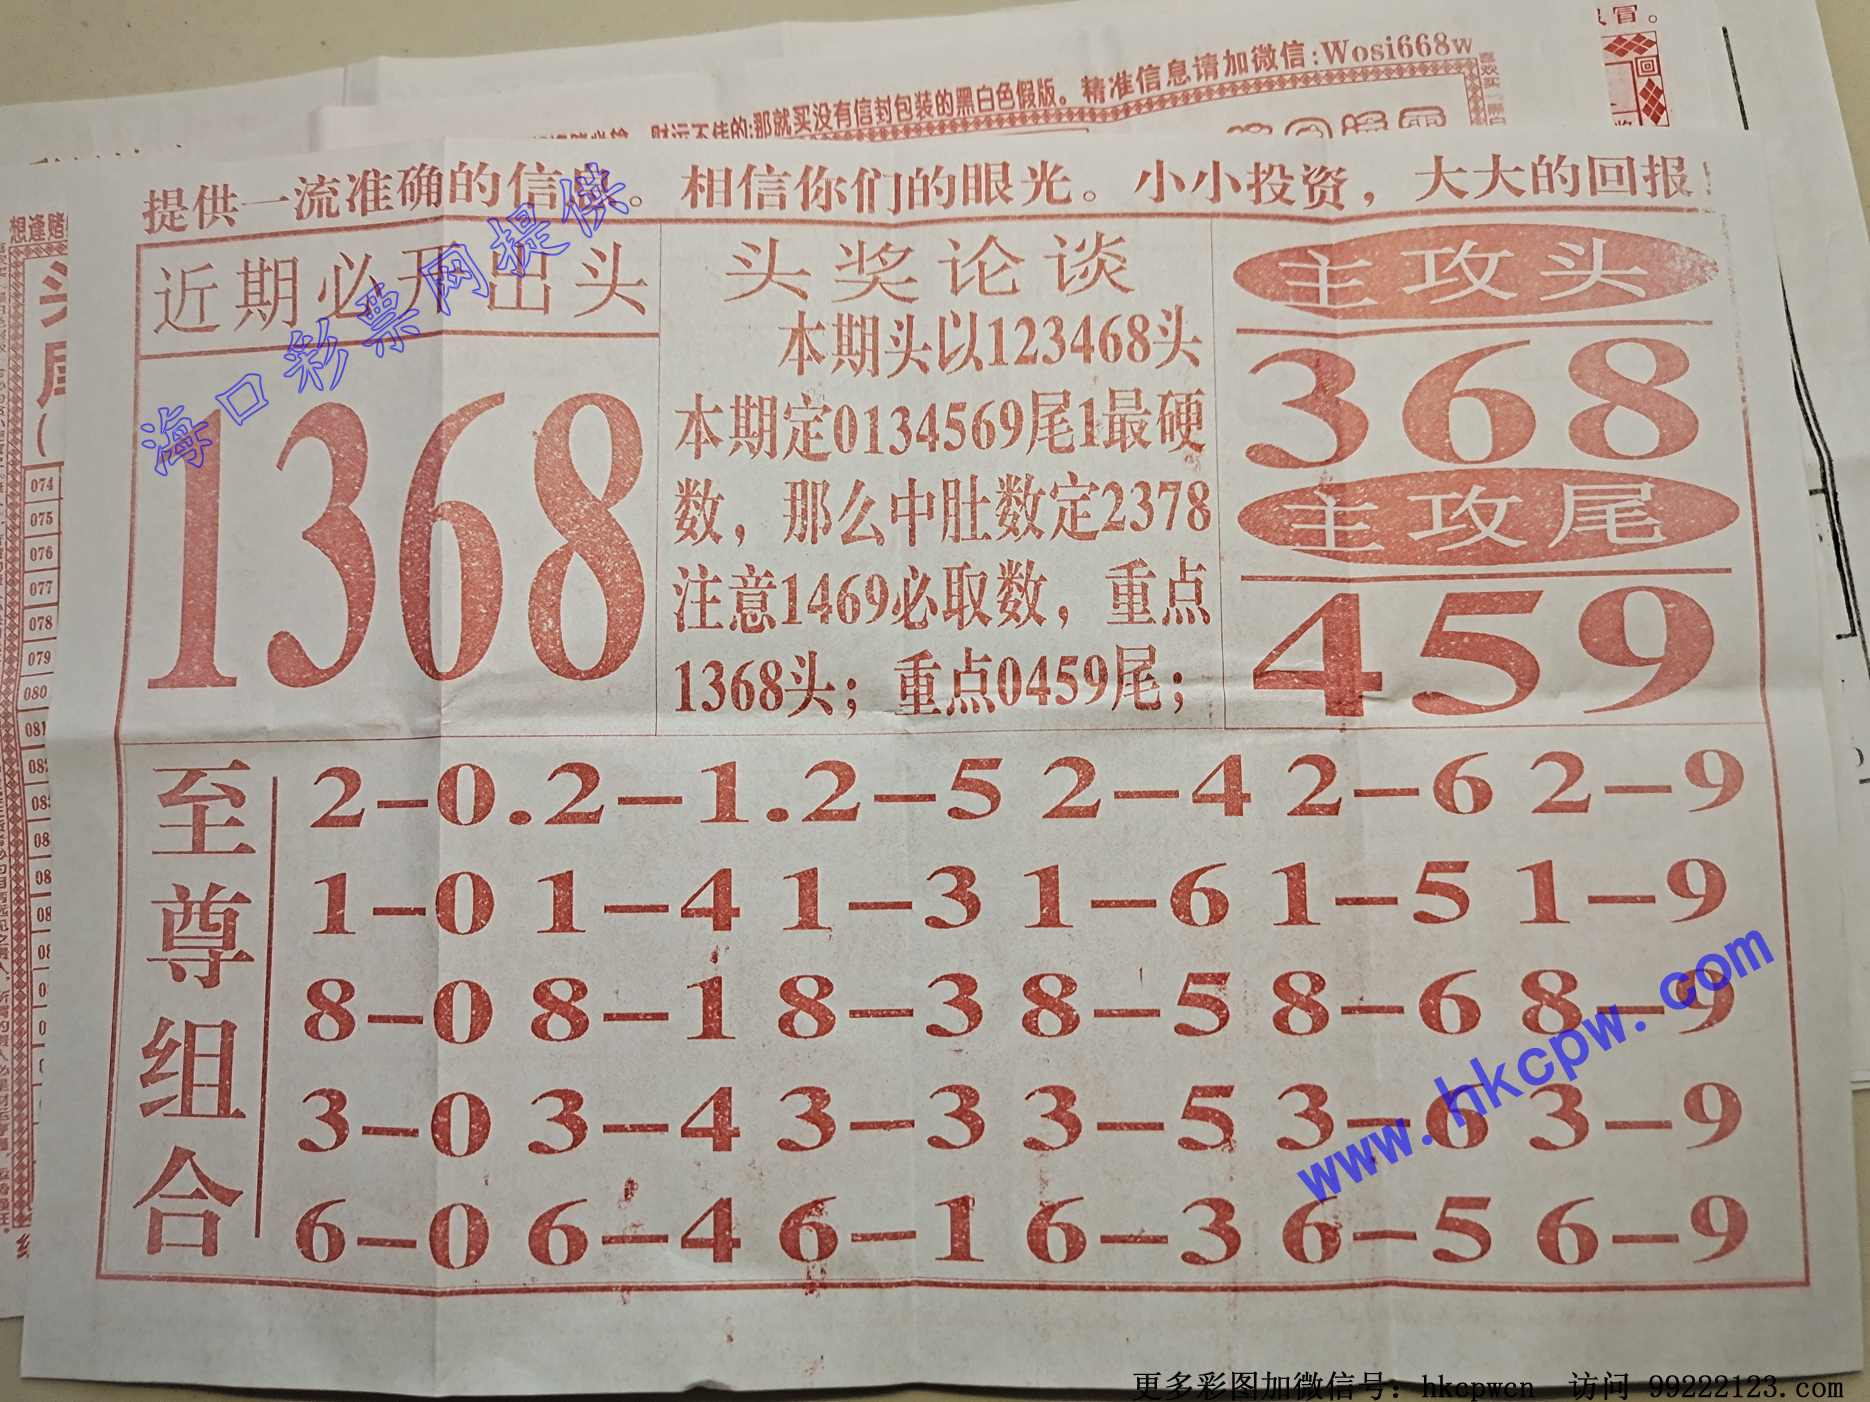 良冒。
财运不佳的:那就买没有信封包装的黑白色假版。精准信息请加微信:Wosi668w
提供一流准确的信息。相信你们的眼光。小小投资，大大的回报！
想逢赌
近期必开出头
1368
头奖论谈
本期头以123468头
本期定0134569尾1最硬
数，那么中肚数定2378
注意1469必取数，重点
1368头；重点0459尾；
主攻头
368
主攻尾
459
074
075
076
077
078
079
080
081
至尊组合
2-0.2-1.2-5 2-4 2-6 2-9
1-0 1-4 1-3 1-6 1-5 1-9
8-0 8-1 8-3 8-5 8-6 8-9
3-0 3-4 3-3 3-5 3-6 3-9
6-0 6-4 6-1 6-3 6-5 6-9
海口彩票网提供
www.hkcpw.com
更多彩图加微信号：hkcpwcn 访问 99222123.com